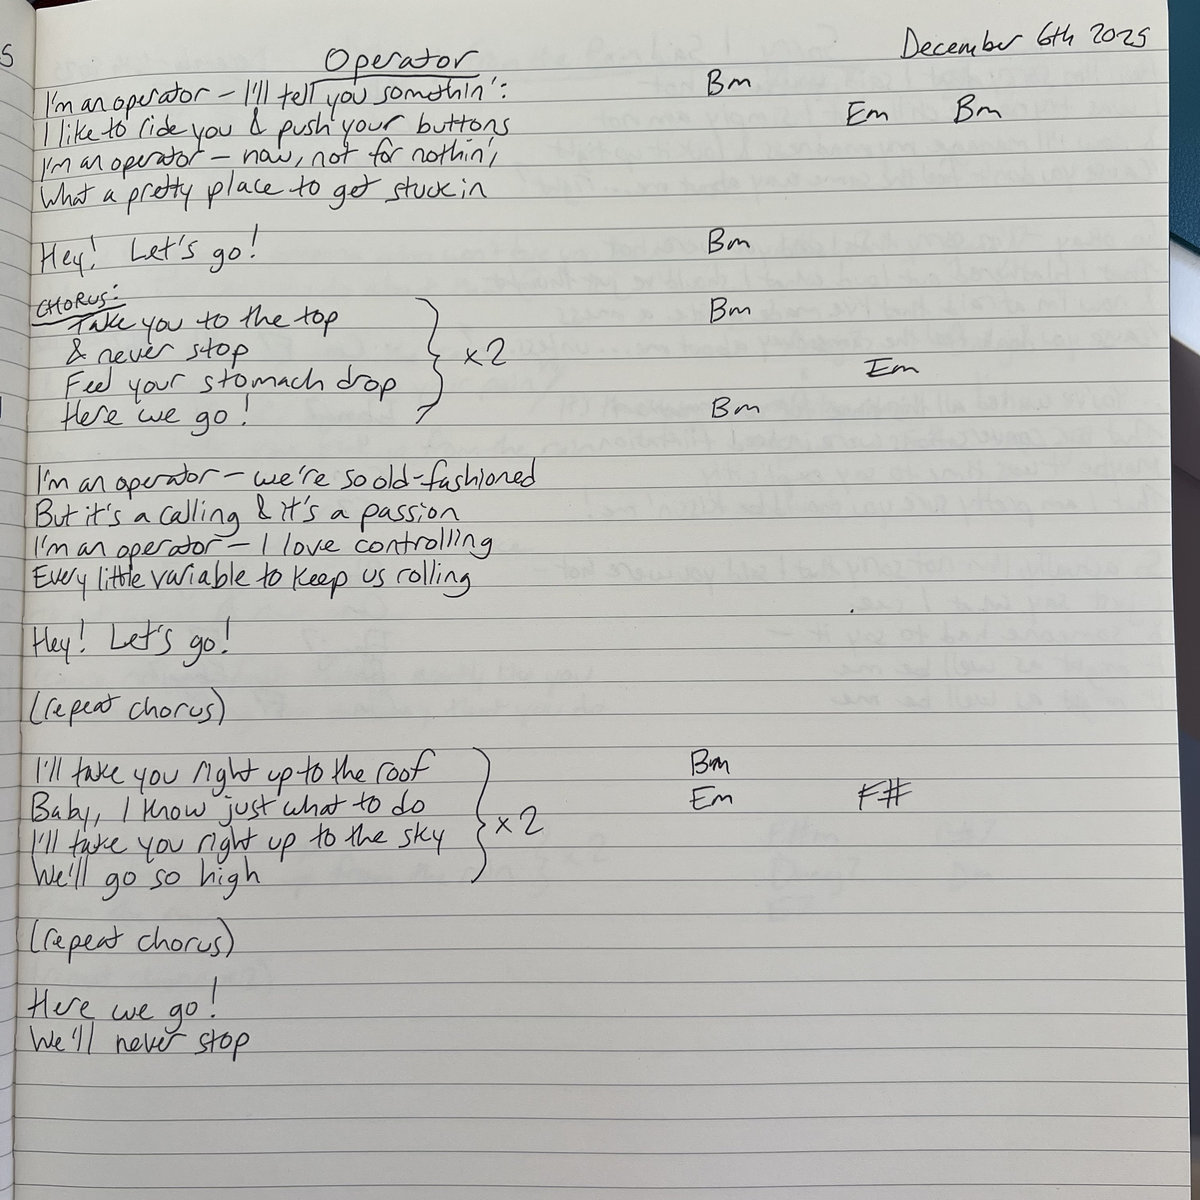 December 6th 2025
Operator
I'm an operator – I'll tell you somethin': Bm
I like to ride you & push your buttons Em Bm
I'm an operator – now, not for nothin',
What a pretty place to get stuck in
Hey! Let's go! Bm
CHORUS:
Take you to the top Bm
& never stop
Feel your stomach drop Em
Here we go! Bm
x2
I'm an operator – we're so old-fashioned
But it's a calling & it's a passion
I'm an operator – I love controlling
Every little variable to keep us rolling
Hey! Let's go!
(repeat chorus)
I'll take you right up to the roof Bm
Baby, I know just what to do Em F#
I'll take you right up to the sky
We'll go so high
x2
(repeat chorus)
Here we go!
We'll never stop